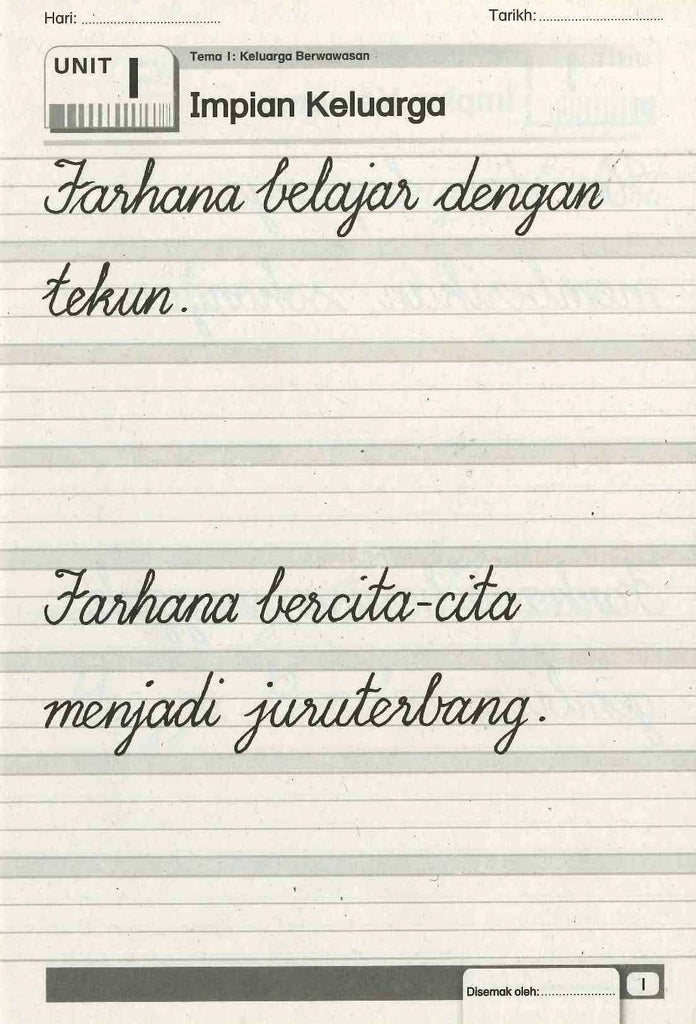 Hari: ........................................ Tarikh: ....................................
UNIT 1
Tema 1: Keluarga Berwawasan
Impian Keluarga
Farhana belajar dengan
tekun.
Farhana bercita-cita
menjadi juruterbang.
Disemak oleh: ......................
1